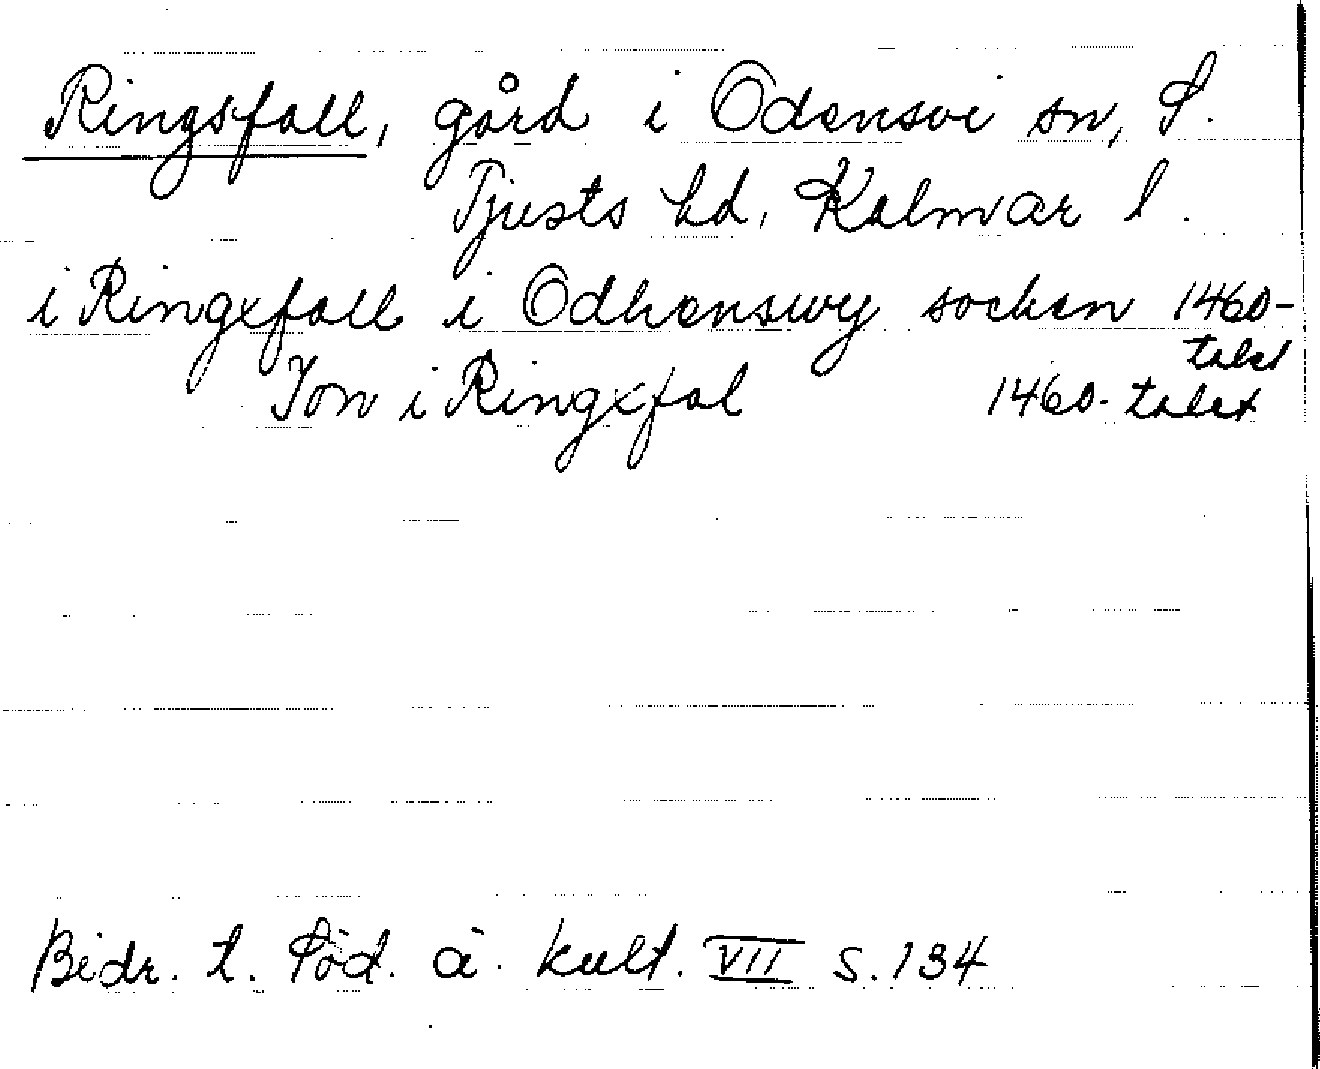 Ringsfall, gård i Odensvi sn, S.
Tjusts hd, Kalmar l.
i Ringxfall i Odhenswy socken 1460-
talet
Jon i Ringxfal 1460-talet
Bidr. t. Söd. ä. kult. VII s. 134